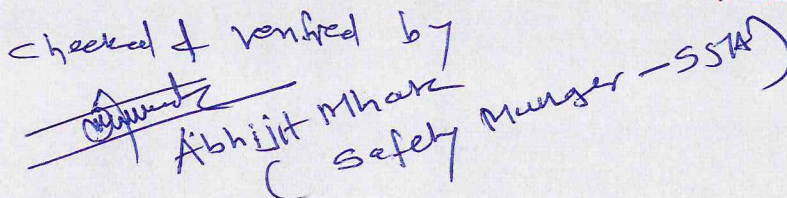 checked & verified by
Abhijit Mhatre
(Safety Manager - SSTA)